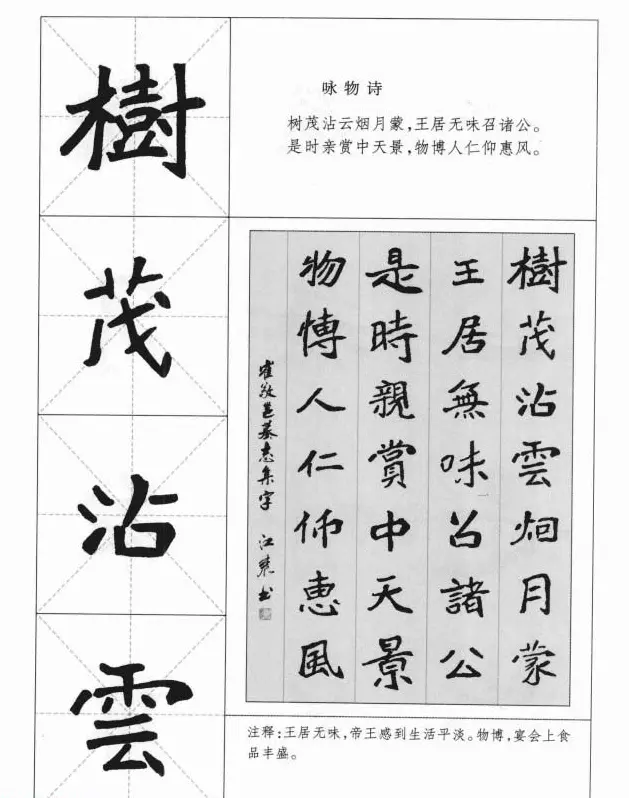 樹
茂
沾
雲
咏物诗
树茂沾云烟月蒙，王居无味召诸公。
是时亲赏中天景，物博人仁仰惠风。
樹茂沾雲烟月蒙
王居無味召諸公
是時親賞中天景
物愽人仁仰惠風
崔敬邕墓志集字 江東书
注释：王居无味，帝王感到生活平淡。物博，宴会上食
品丰盛。